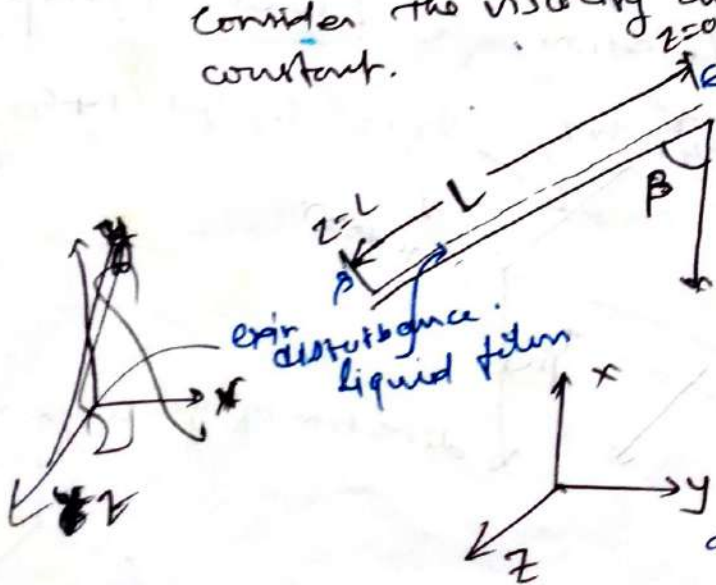 Consider the viscosity
constant.
z=0
L
z=L
β
exit
disturbance.
liquid film
x
y
z
z